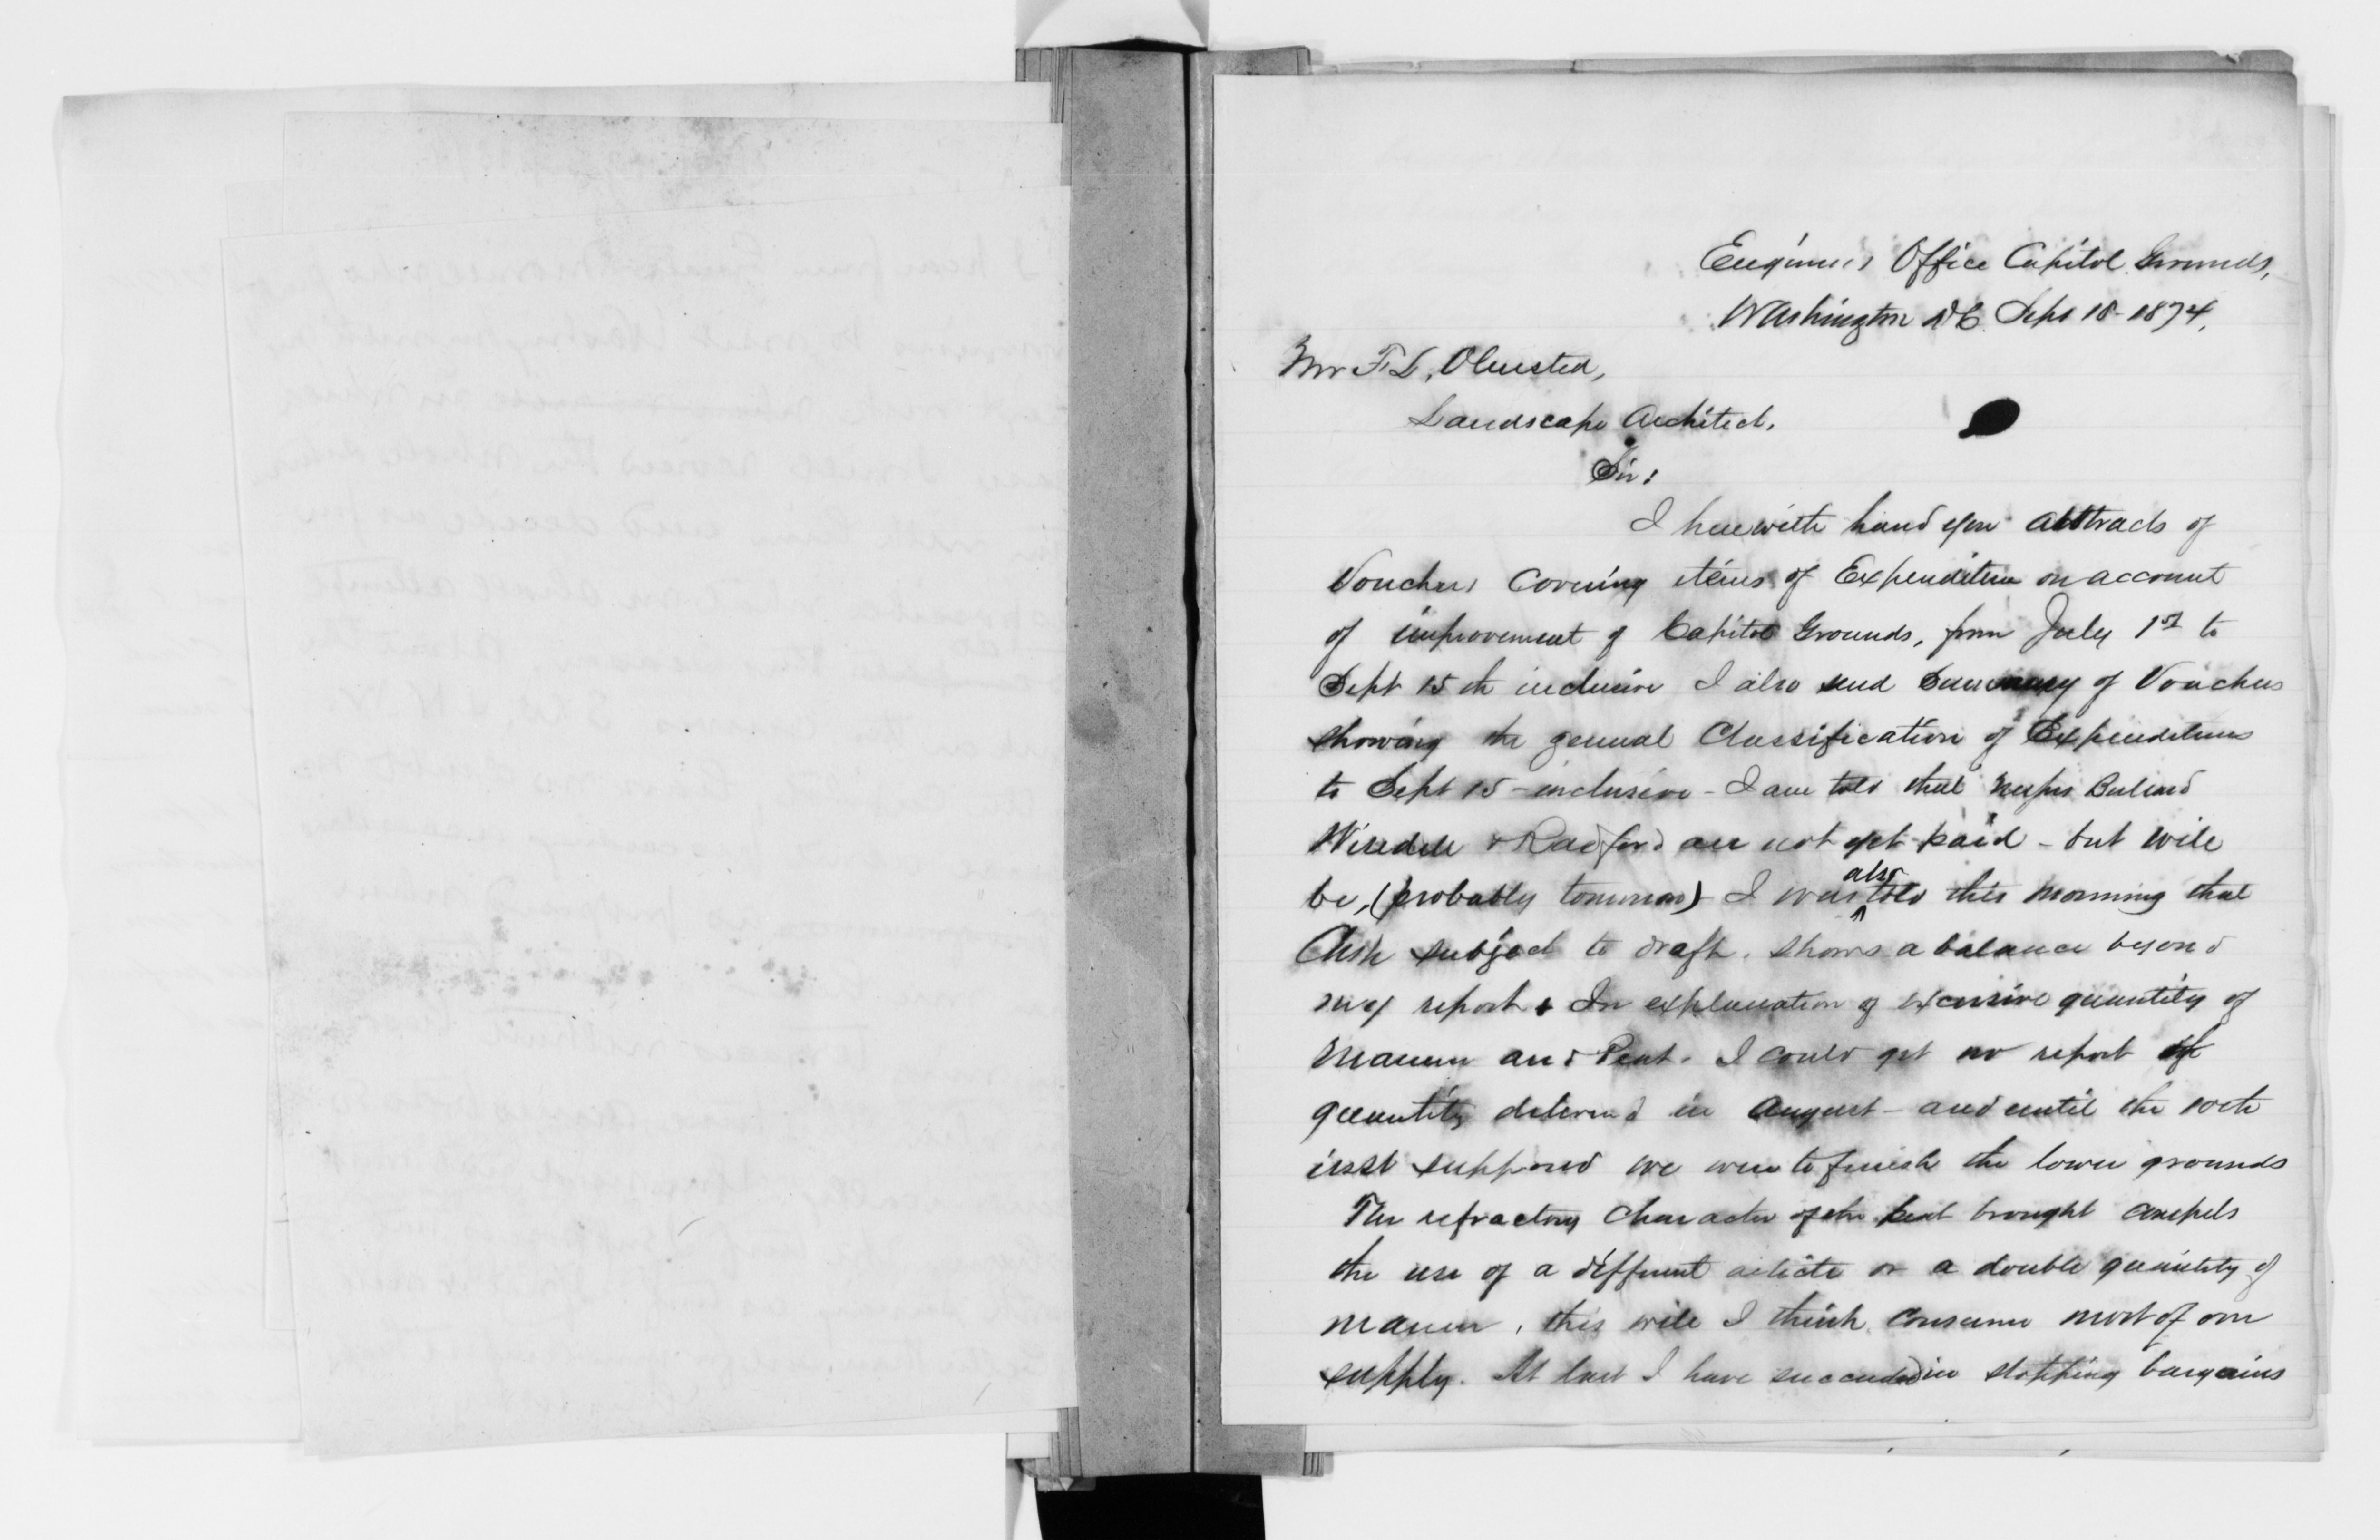 Engineer's Office Capitol Grounds,
Washington DC. Sept 18 - 1874,
Mr F. L. Olmsted,
Landscape Architect.
Sir:
I herewith hand you abstracts of
Vouchers Covering items of Expenditure on account
of improvement of Capitol Grounds, from July 1st to
Sept 15th inclusive I also send Summary of Vouchers
showing the general Classification of Expenditures
to Sept 15 - inclusive - I am told that
& Radford are not yet paid - but will
be, (probably tomorrow) I was also told this morning that
Cash subject to draft. shows a balance beyond
my report. In explanation of excessive quantity of
Manure and Peat. I could get no report of
quantity delivered in August - and until the 10th
inst supposed we were to finish the lower grounds
The refractory Character of the peat brought compels
the use of a different article or a double quantity of
manure, this will I think consume most of our
supply. At last I have succeeded in stopping bargains